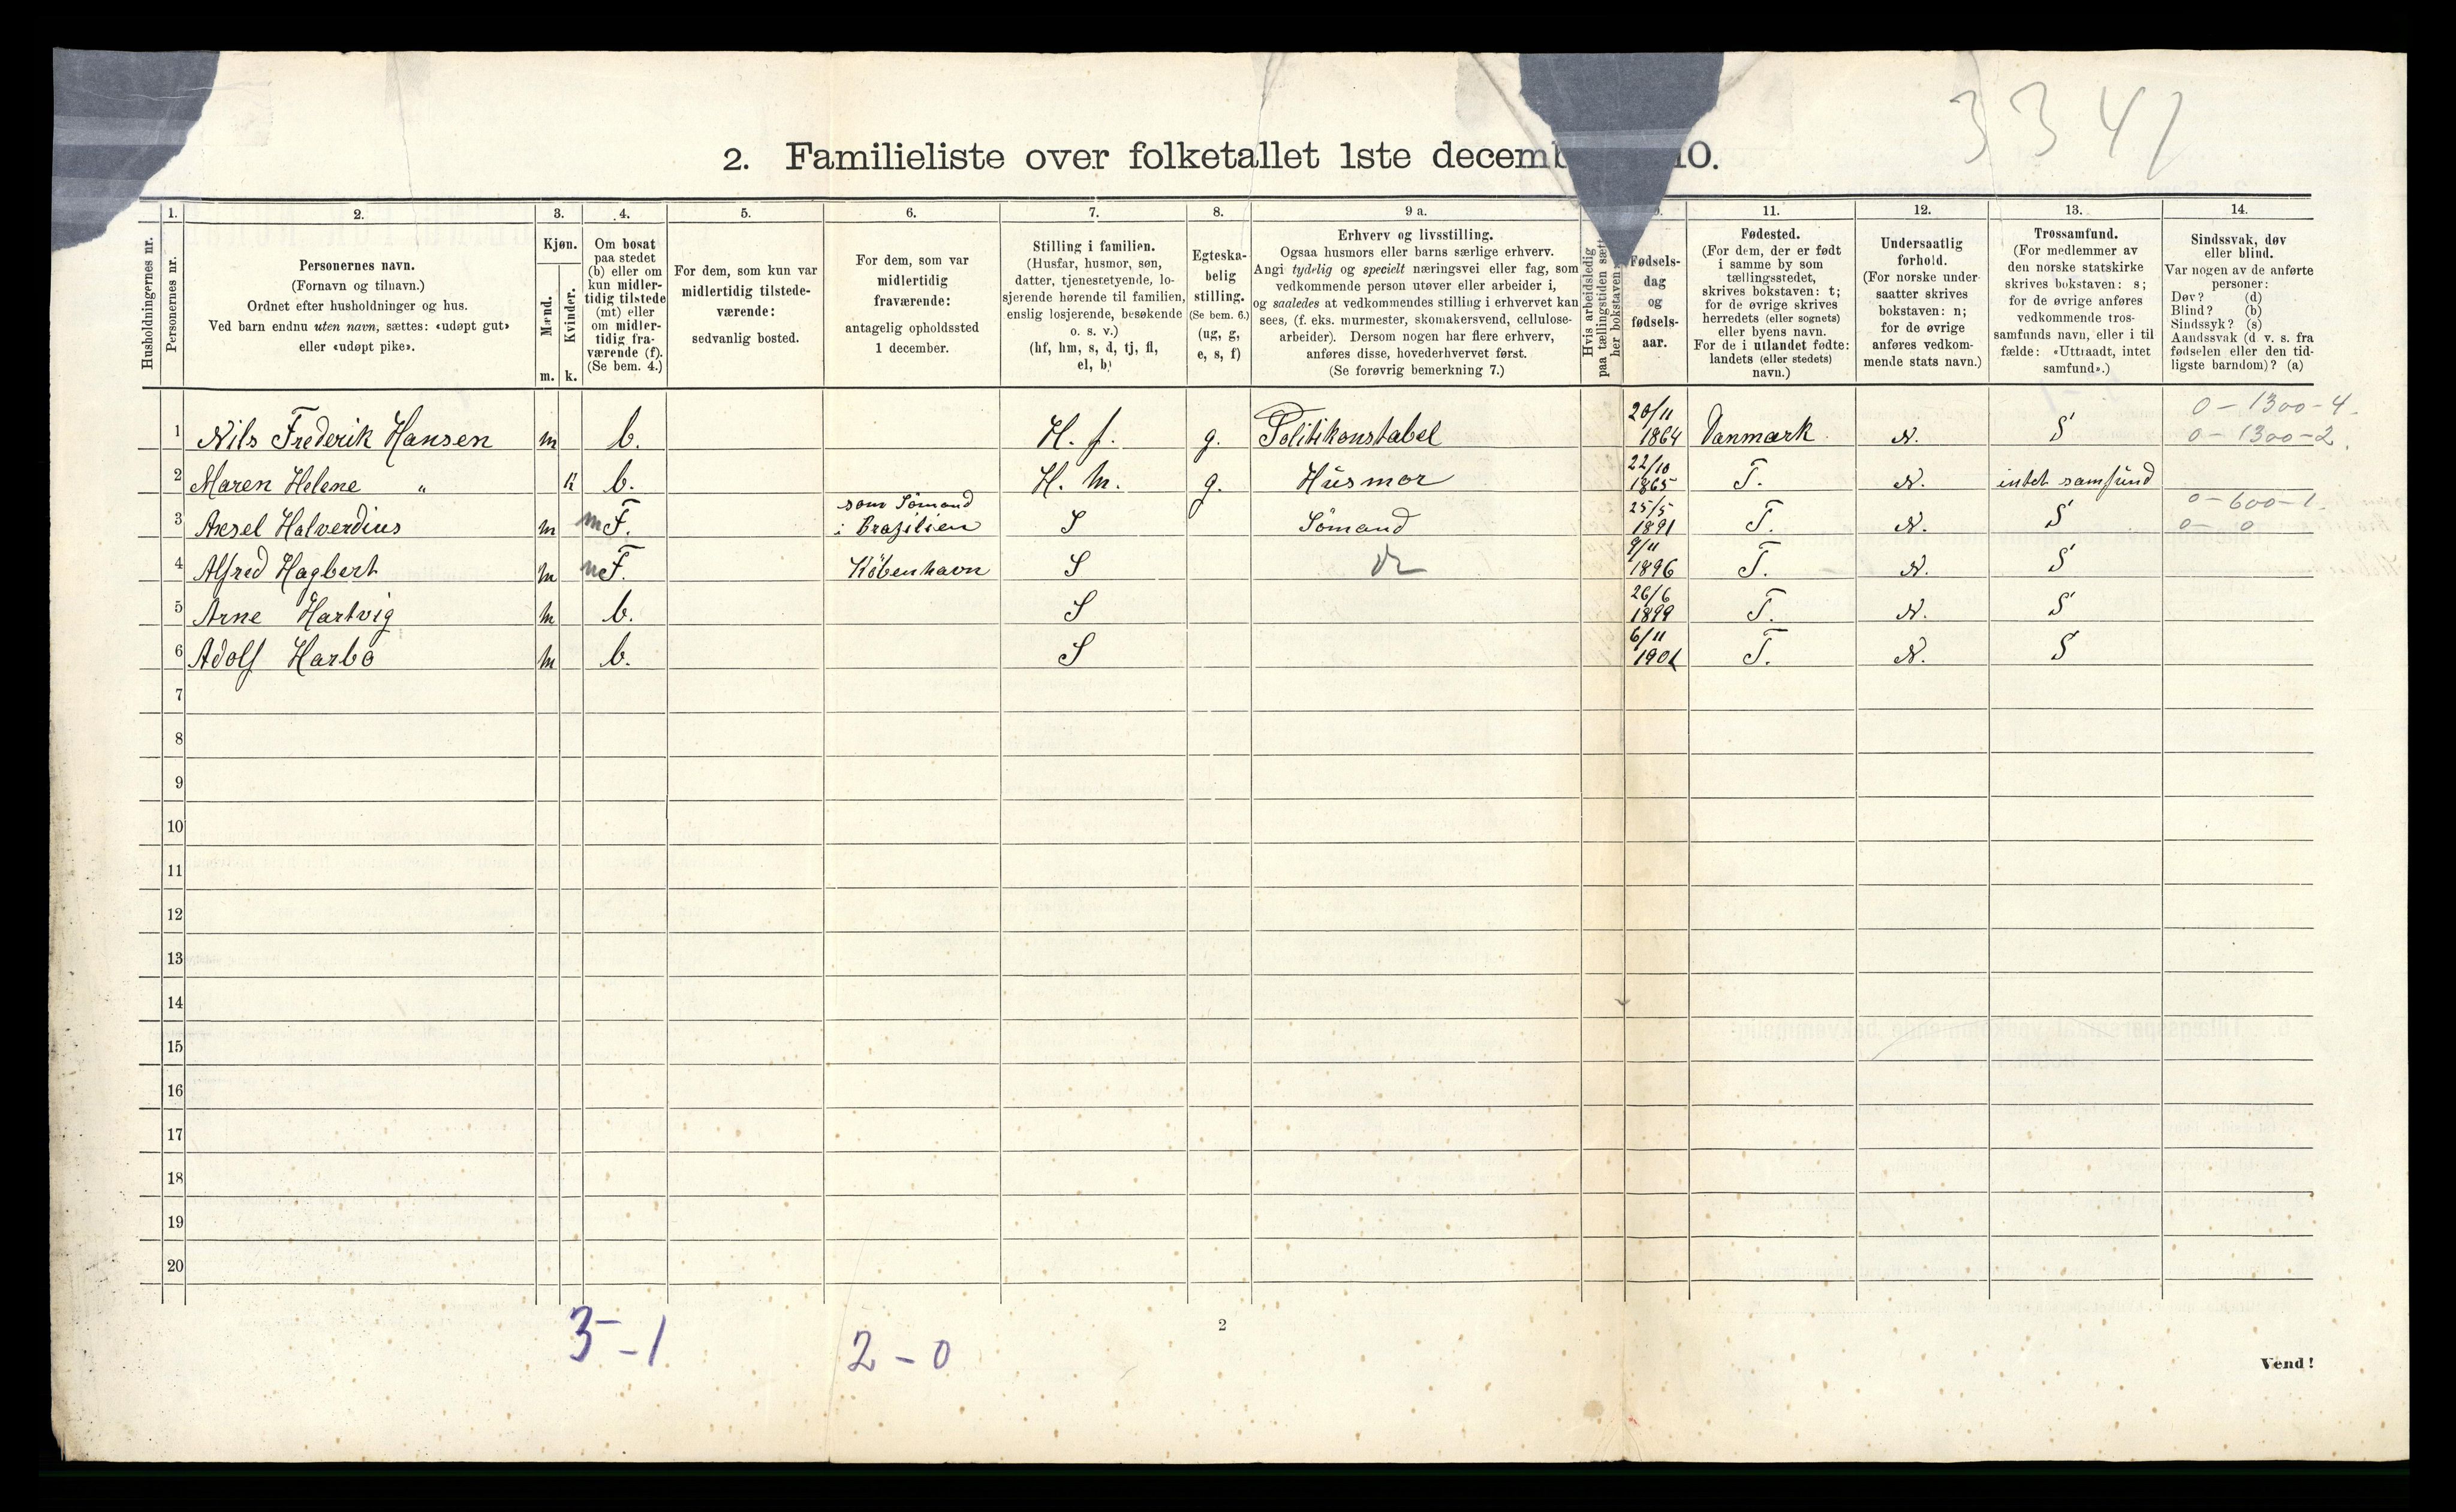 3341
2. Familieliste over folketallet 1ste decemb 10.
Husholdningernes nr.
1.
Personernes nr.
2.
Personernes navn.
(Fornavn og tilnavn.)
Ordnet efter husholdninger og hus.
Ved barn endnu uten navn, sættes: «udøpt gut»
eller «udøpt pike».
3.
Kjøn.
Mænd.
Kvinder.
m. k.
4.
Om bosat
paa stedet
(b) eller om
kun midler-
tidig tilstede
(mt) eller
om midler-
tidig fra-
værende (f).
(Se bem. 4.)
5.
For dem, som kun var
midlertidig tilstede-
værende:
sedvanlig bosted.
6.
For dem, som var
midlertidig
fraværende:
antagelig opholdssted
1 december.
7.
Stilling i familien.
(Husfar, husmor, søn,
datter, tjenestetyende, lo-
sjerende hørende til familien,
enslig losjerende, besøkende
o. s. v.)
(hf, hm, s, d, tj, fl,
el, b)
8.
Egteska-
belig
stilling.
(Se bem. 6.)
(ug, g,
e, s, f)
9 a.
Erhverv og livsstilling.
Ogsaa husmors eller barns særlige erhverv.
Angi tydelig og specielt næringsvei eller fag, som
vedkommende person utøver eller arbeider i,
og saaledes at vedkommendes stilling i erhvervet kan
sees, (f. eks. murmester, skomakersvend, cellulose-
arbeider). Dersom nogen har flere erhverv,
anføres disse, hovederhvervet først.
(Se forøvrig bemerkning 7.)
Hvis arbeidsledig
paa tællingstiden sætt
her bokstaven
Fødsels-
dag
og
fødsels-
aar.
11.
Fødested.
(For dem, der er født
i samme by som
tællingsstedet,
skrives bokstaven: t;
for de øvrige skrives
herredets (eller sognets)
eller byens navn.
For de i utlandet fødte:
landets (eller stedets)
navn.)
12.
Undersaatlig
forhold.
(For norske under-
saatter skrives
bokstaven: n;
for de øvrige
anføres vedkom-
mende stats navn.)
13.
Trossamfund.
(For medlemmer av
den norske statskirke
skrives bokstaven: s;
for de øvrige anføres
vedkommende tros-
samfunds navn, eller i til
fælde: «Uttraadt, intet
samfund».)
14.
Sindssvak, døv
eller blind.
Var nogen av de anførte
personer:
Døv? (d)
Blind? (b)
Sindssyk? (s)
Aandssvak (d. v. s. fra
fødselen eller den tid-
ligste barndom)? (a)
1 Nils Frederik Hansen m b. H. f. g. Politikonstabel 20/11 1864 Danmark N. S 0-1300-4. 0-1300-2.
2 Maren Helene " K b. H. m. g. Husmor 22/10 1865 T. N. intet samfund
3 Aksel Halverdius m mF. som Sömand i Brazilien S Sömand 25/5 1891 T. N. S 0-600-1. 0-0
4 Alfred Hagbert m F. Köbenhavn S 9/11 1896 T. N. S
5 Arne Hartvig m b. S 26/6 1899 T. N. S
6 Adolf Harbo m b. S 6/11 1901 T. N. S
7
8
9
10
11
12
13
14
15
16
17
18
19
20
3-1
2-0
2
Vend!